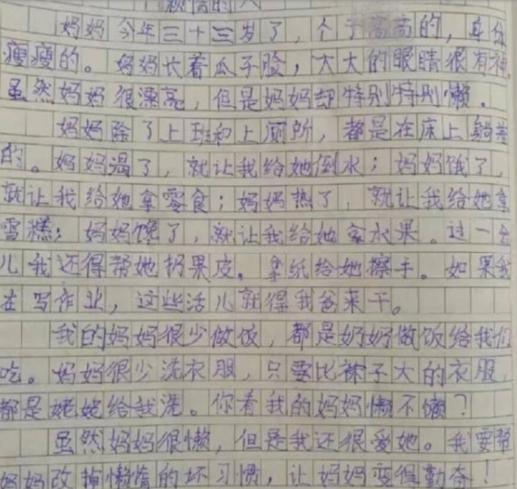 懒惰的人
妈妈今年三十三岁了，个子高高的，身体
瘦瘦的。妈妈长着瓜子脸，大大的眼睛很有神，
虽然妈妈很漂亮，但是妈妈却特别特别懒。
妈妈除了上班和上厕所，都是在床上躺着
的。妈妈渴了，就让我给她倒水；妈妈饿了，
就让我给她拿零食；妈妈热了，就让我给她拿
雪糕；妈妈馋了，就让我给她拿水果。过一会
儿我还得帮她扔果皮，拿纸给她擦手。如果我
在写作业，这些活儿就得我爸来干。
我的妈妈很少做饭，都是奶奶做饭给我们
吃。妈妈很少洗衣服，只要比袜子大的衣服，
都是姥姥给我洗。你看我的妈妈懒不懒？
虽然妈妈很懒，但是我还很爱她。我要帮
妈妈改掉懒惰的坏习惯，让妈妈变得勤奋！